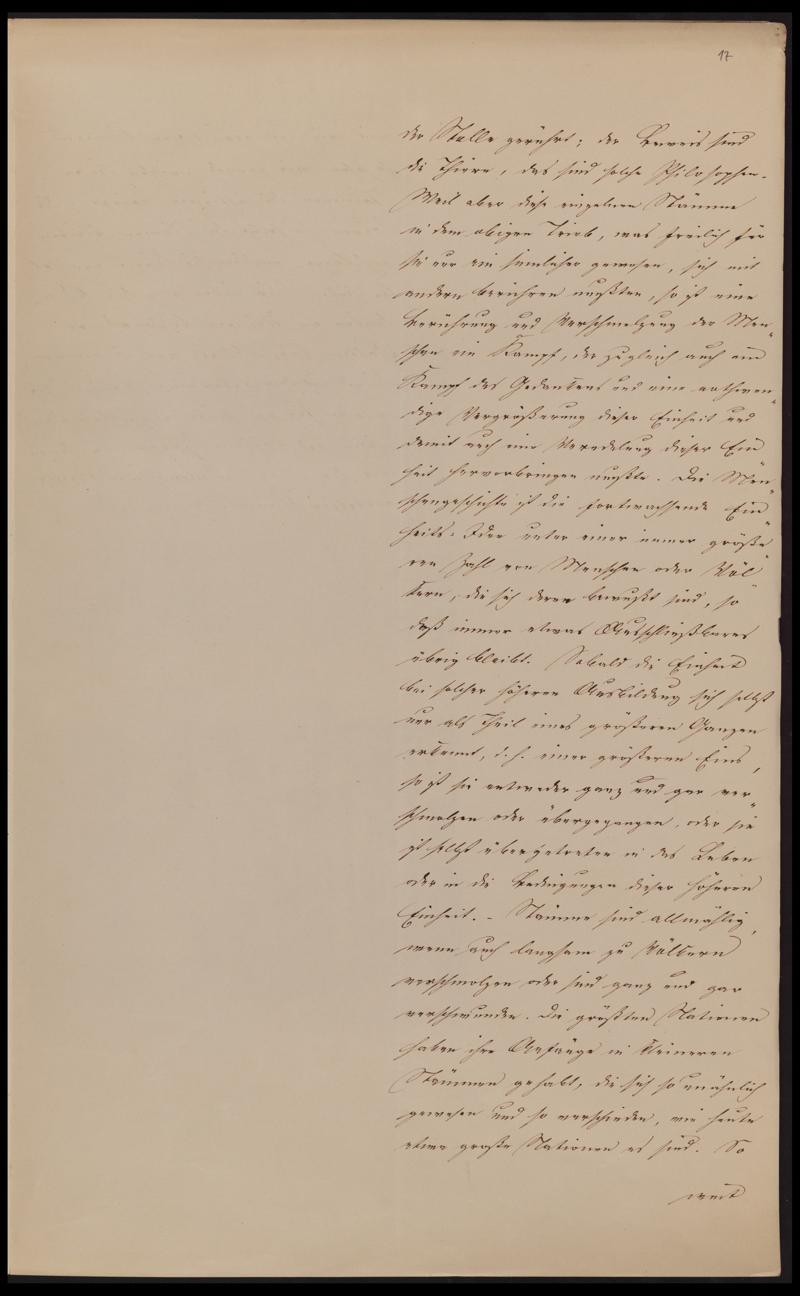 17
der Stelle gerührt; der Beweis sind
die Thiere, das sind solche Philosophen.
Weil aber diese einzelnen Stämme
in dem obigen Trieb, was freilich für
sie nur ein sinnlicher gewesen, sich mit
andern berühren mußten, so ist eine
Berührung und Verschmelzung der Men„
schen ein Kampf, der zugleich auch ein
Kampf des Gedankens und eine nothwen„
dige Vergrößerung dieser Einheit und
damit auch eine Veredelung dieser Ein
heit hervorbringen mußte. Die Men„
schengeschichte ist die fortwachsende Ein„
heits-Idee unter einer immer größe„
ren Zahl von Menschen oder Völ„
kern, die sich deren bewußt sind, so
daß immer etwas Ausschließbares
übrig bleibt. Sobald die Einheit
bei solcher höheren Ausbildung sich selbst
nur als Theil eines größeren Ganzen
erkennt, d. h. einer größeren Eins,
so ist sie entweder ganz und gar ver„
schmolzen oder übergegangen, oder sie
ist selbst übergetreten in das Leben
oder in die Bedingungen dieser höheren
Einheit. – Stämme sind allmählig,
wenn auch langsam zu Völkern
verschmolzen oder sind ganz und gar
verschwunden. Die größten Nationen
haben ihre Anfänge in kleineren
Stämmen gehabt, die sich so unähnlich
gewesen und so verschieden, wie heute
etwa große Nationen es sind. So
weit